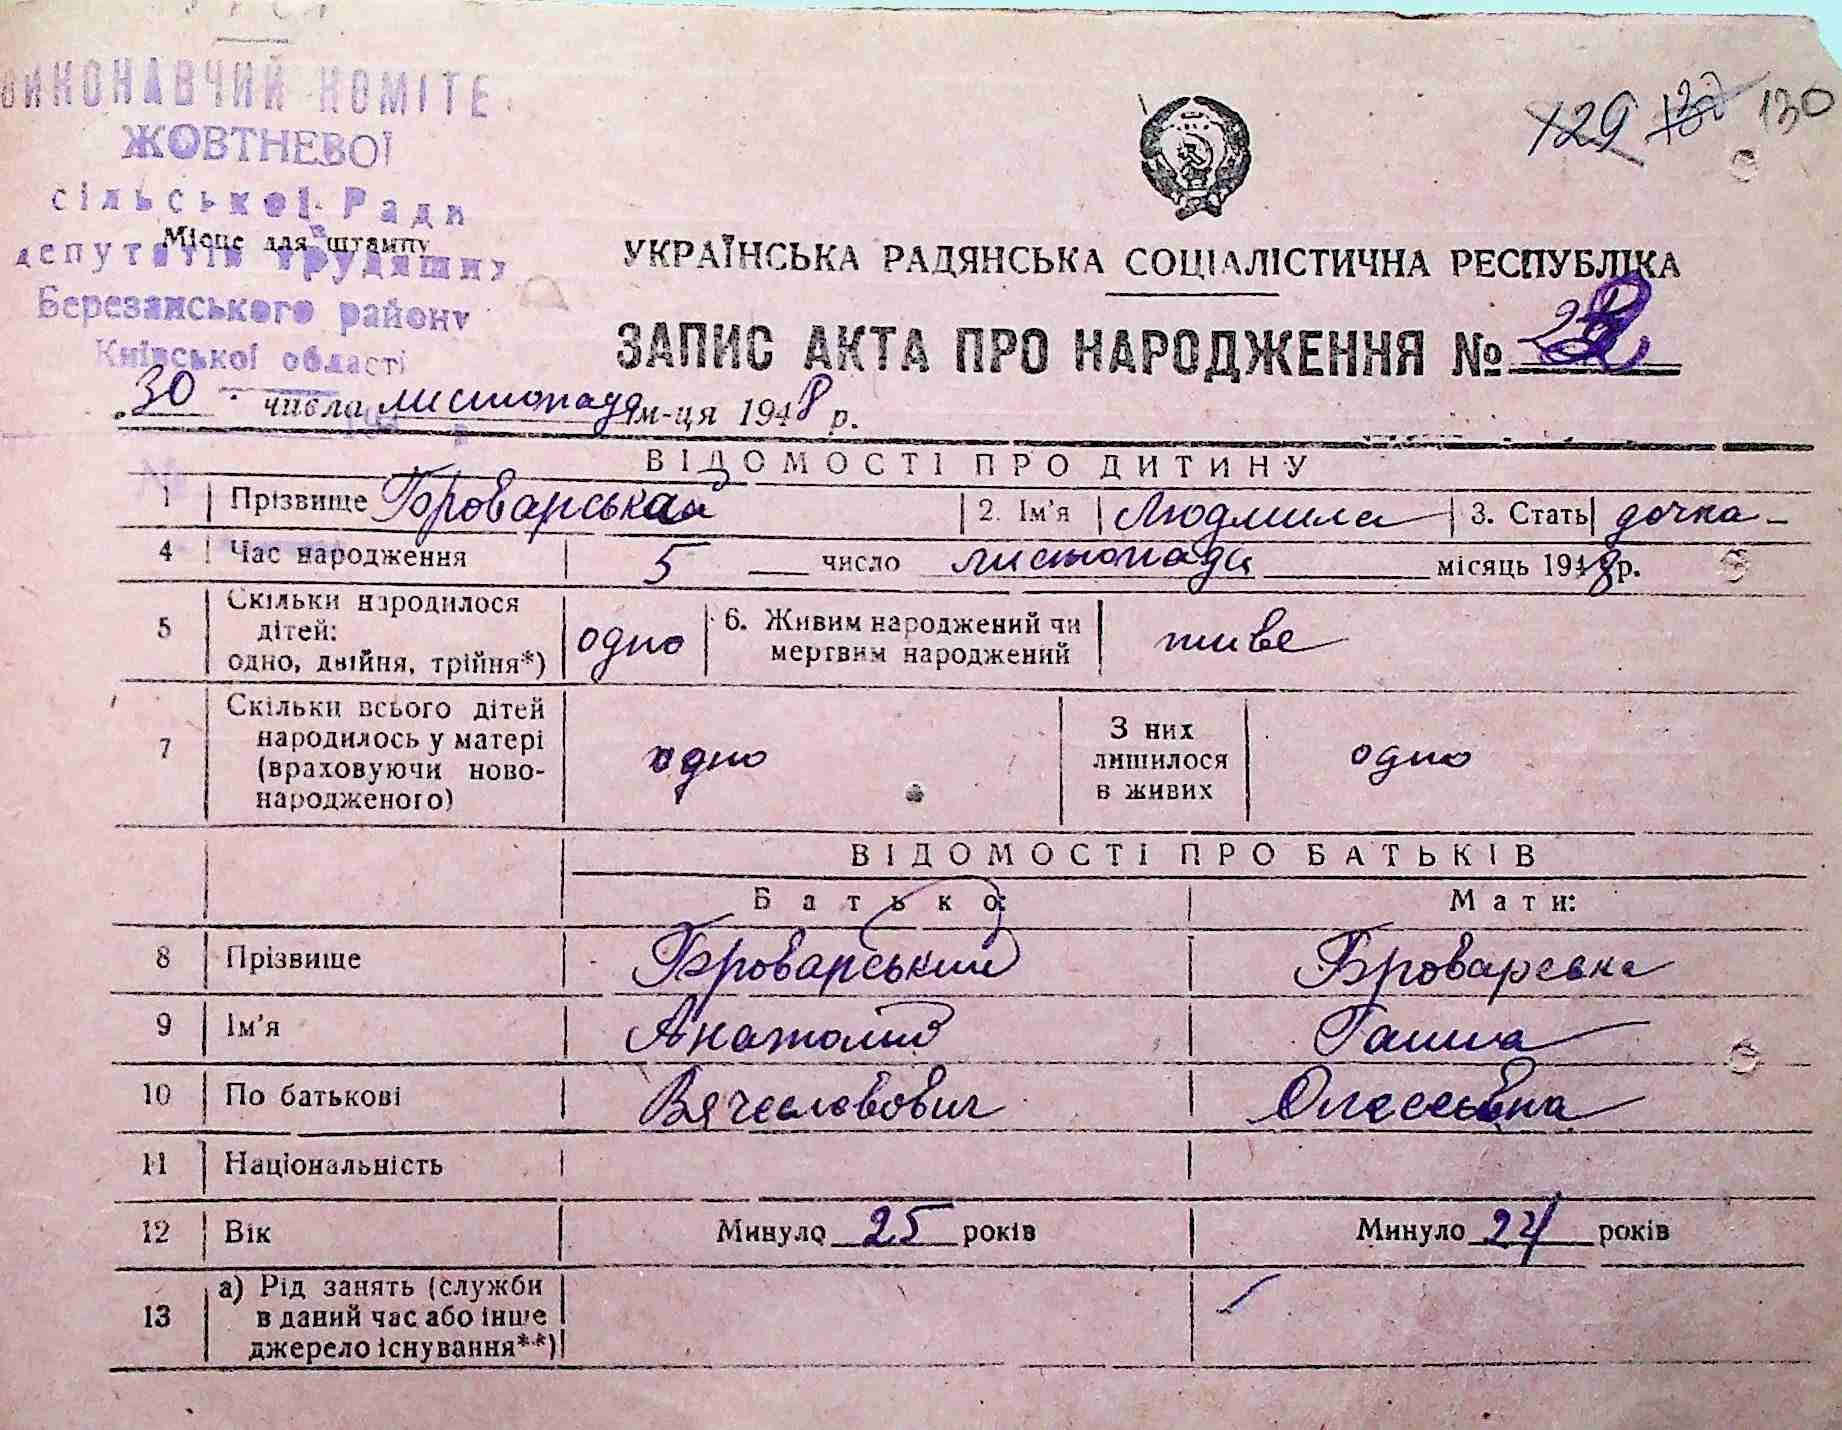 129 130
ВИКОНАВЧИЙ КОМІТЕ
ЖОВТНЕВОЇ
сільської Ради
Місце для штампу
депутатів трудящих
Березанського району
Київської області
УКРАЇНСЬКА РАДЯНСЬКА СОЦІАЛІСТИЧНА РЕСПУБЛІКА
ЗАПИС АКТА ПРО НАРОДЖЕННЯ №
30 числа листопада м-ця 1948 р.
ВІДОМОСТІ ПРО ДИТИНУ
1 Прізвище Броварська 2. Ім'я Людмила 3. Стать дочка
4 Час народження 5 число листопада місяць 1948 р.
5 Скільки народилося дітей: одно, двійня, трійня*) одно 6. Живим народжений чи мертвим народжений живе
7 Скільки всього дітей народилось у матері (враховуючи ново-народженого) одно З них лишилося в живих одно
ВІДОМОСТІ ПРО БАТЬКІВ
Батько: Мати:
8 Прізвище Броварський Броварська
9 Ім'я Анатолій Ганна
10 По батькові Вячеславович Олексеівна
11 Національність
12 Вік Минуло 25 років Минуло 24 років
13 а) Рід занять (служби в даний час або інше джерело існування**)